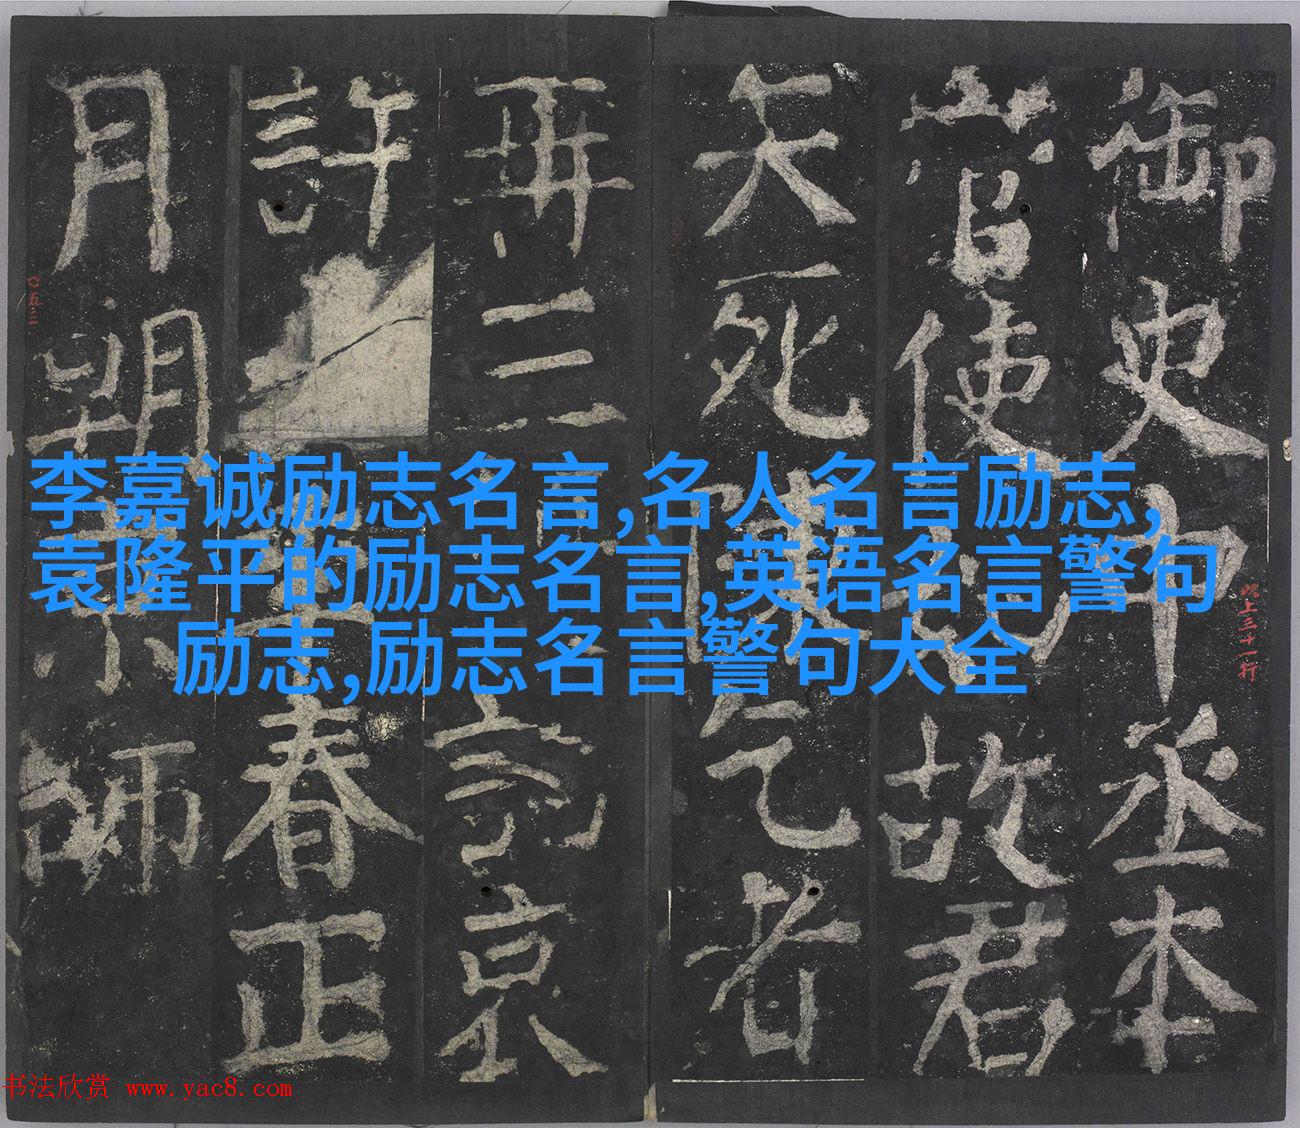 李嘉诚励志名言,名人名言励志,
袁隆平的励志名言,英语名言警句
励志,励志名言警句大全
御史中丞本
使故君
死乞者
再三京
許春正
月朔京師
此上三十一行
〇五三
书法欣赏 www.yac8.com